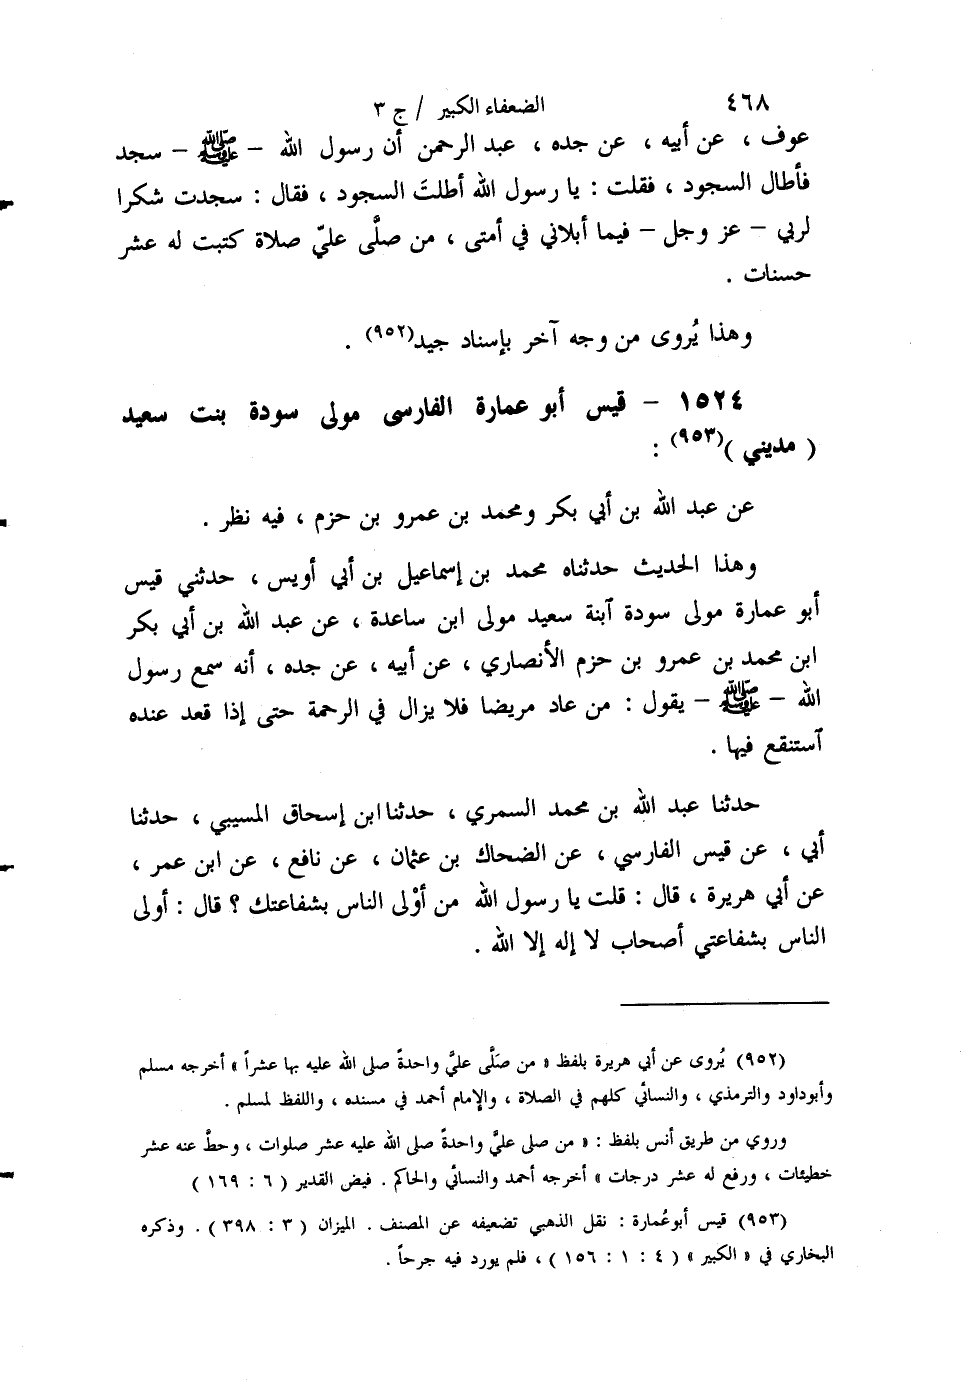 ٤٦٨ الضعفاء الكبير / ج ٣
عوف ، عن أبيه ، عن جده ، عبد الرحمن أن رسول الله - ﷺ - سجد
فأطال السجود ، فقلت : يا رسول الله أطلتَ السجود ، فقال : سجدت شكرا
لربي - عز وجل - فيما أبلاني في أمتى ، من صلَّى عليّ صلاة كتبت له عشر
حسنات .
وهذا يُروى من وجه آخر بإسناد جيد(٩٥٢) .
١٥٢٤ - قيس أبو عمارة الفارسى مولى سودة بنت سعيد
( مديني )(٩٥٣) :
عن عبد الله بن أبي بكر ومحمد بن عمرو بن حزم ، فيه نظر .
وهذا الحديث حدثناه محمد بن إسماعيل بن أبي أويس ، حدثني قيس
أبو عمارة مولى سودة آبنة سعيد مولى ابن ساعدة ، عن عبد الله بن أبي بكر
ابن محمد بن عمرو بن حزم الأنصاري ، عن أبيه ، عن جده ، أنه سمع رسول
الله - ﷺ - يقول : من عاد مريضا فلا يزال في الرحمة حتى إذا قعد عنده
آستنقع فيها .
حدثنا عبد الله بن محمد السمري ، حدثنا ابن إسحاق المسيبي ، حدثنا
أبي ، عن قيس الفارسي ، عن الضحاك بن عثمان ، عن نافع ، عن ابن عمر ،
عن أبي هريرة ، قال : قلت يا رسول الله من أوْلى الناس بشفاعتك ؟ قال : أولى
الناس بشفاعتي أصحاب لا إله إلا الله .
(٩٥٢) يُروى عن أبي هريرة بلفظ « من صَلَّى عليَّ واحدةً صلى الله عليه بها عشراً » أخرجه مسلم
وأبوداود والترمذي ، والنسائي كلهم في الصلاة ، والإمام أحمد في مسنده ، واللفظ لمسلم .
وروي من طريق أنس بلفظ : « من صلى عليَّ واحدةً صلى الله عليه عشر صلوات ، وحطَّ عنه عشر
خطيئات ، ورفع له عشر درجات » أخرجه أحمد والنسائي والحاكم . فيض القدير ( ٦ : ١٦٩ )
(٩٥٣) قيس أبوعُمارة : نقل الذهبي تضعيفه عن المصنف . الميزان ( ٣ : ٣٩٨ ) . وذكره
البخاري في « الكبير » ( ٤ : ١ : ١٥٦ ) ، فلم يورد فيه جرحاً .